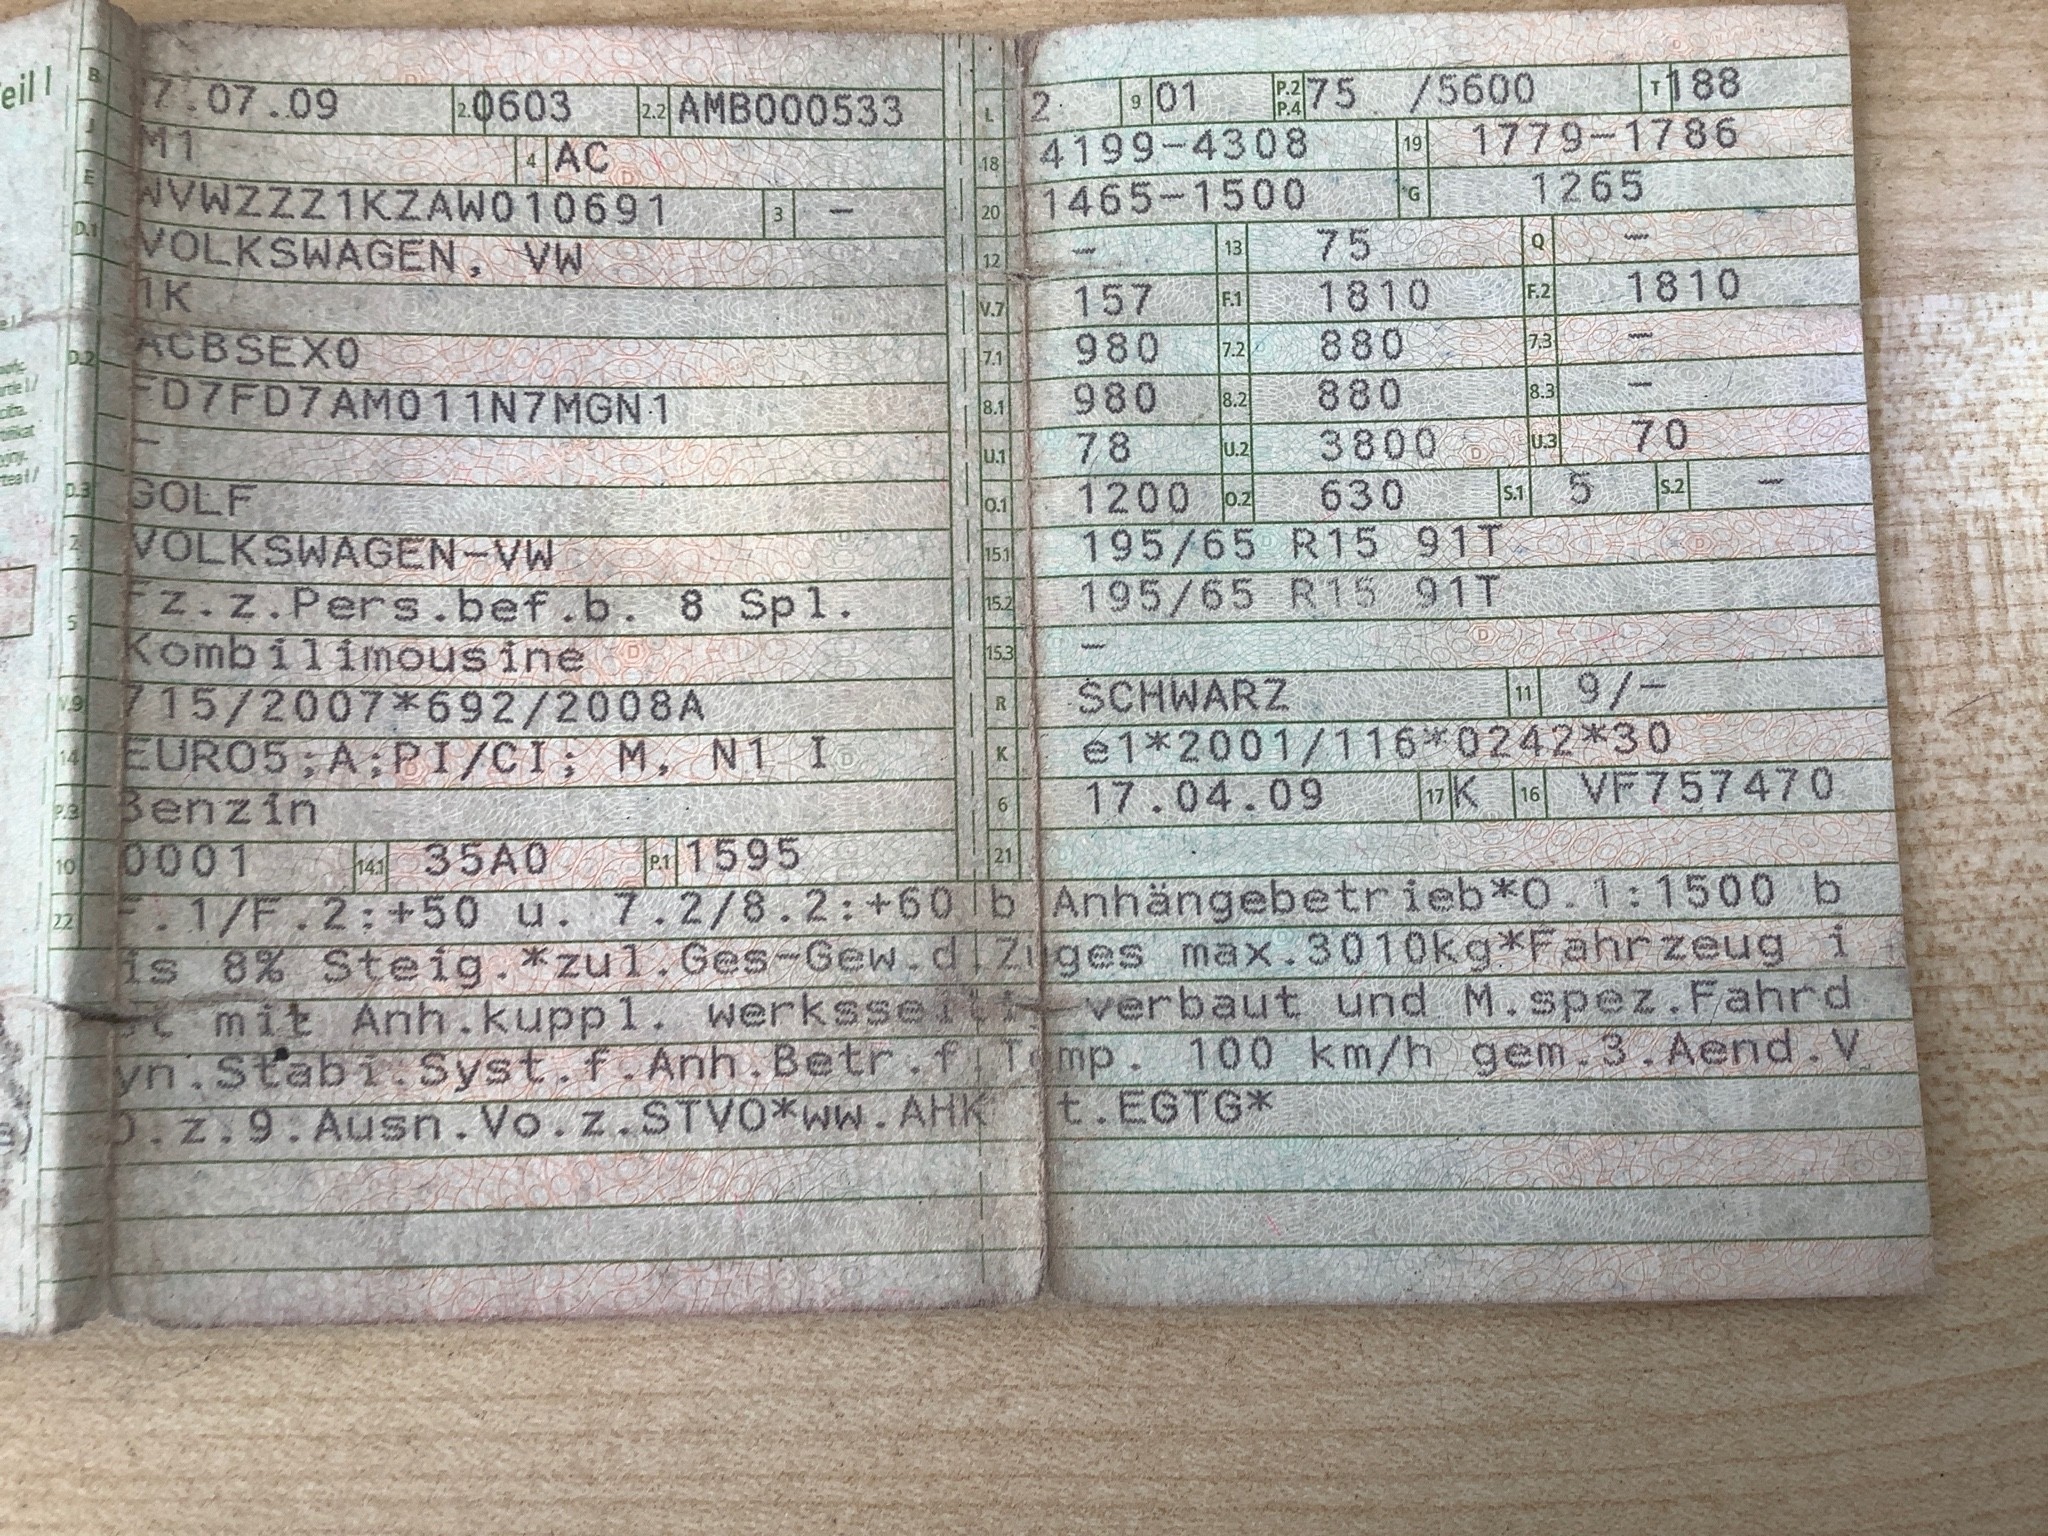 eil I
B 7.07.09 2.1 0603 2.2 AMB000533
J M1 4 AC
E WVWZZZ1KZAW010691 3 –
D.1 VOLKSWAGEN, VW
1K
D.2 ACBSEX0
FD7FD7AM011N7MGN1
–
D.3 GOLF
2 VOLKSWAGEN-VW
5 Fz.z.Pers.bef.b. 8 Spl.
Kombilimousine
V.9 715/2007*692/2008A
14 EURO5;A;PI/CI; M, N1 I
P.3 Benzin
10 0001 14.1 35A0 P.1 1595
L 2 9 01 P.2 P.4 75 /5600 T 188
18 4199-4308 19 1779-1786
20 1465-1500 G 1265
12 – 13 75 Q –
V.7 157 F.1 1810 F.2 1810
7.1 980 7.2 880 7.3 –
8.1 980 8.2 880 8.3 –
U.1 78 U.2 3800 U.3 70
O.1 1200 O.2 630 S.1 5 S.2 –
15.1 195/65 R15 91T
15.2 195/65 R15 91T
15.3 –
R SCHWARZ 11 9/–
K e1*2001/116*0242*30
6 17.04.09 17 K 16 VF757470
21
22 F.1/F.2:+50 u. 7.2/8.2:+60 b Anhängebetrieb*O.1:1500 b
is 8% Steig.*zul.Ges-Gew.d.Zuges max.3010kg*Fahrzeug i
st mit Anh.kuppl. werksseiti verbaut und M.spez.Fahrd
yn.Stabi.Syst.f.Anh.Betr.f.Temp. 100 km/h gem.3.Aend.V
O.z.9.Ausn.Vo.z.STVO*ww.AHK t.EGTG*